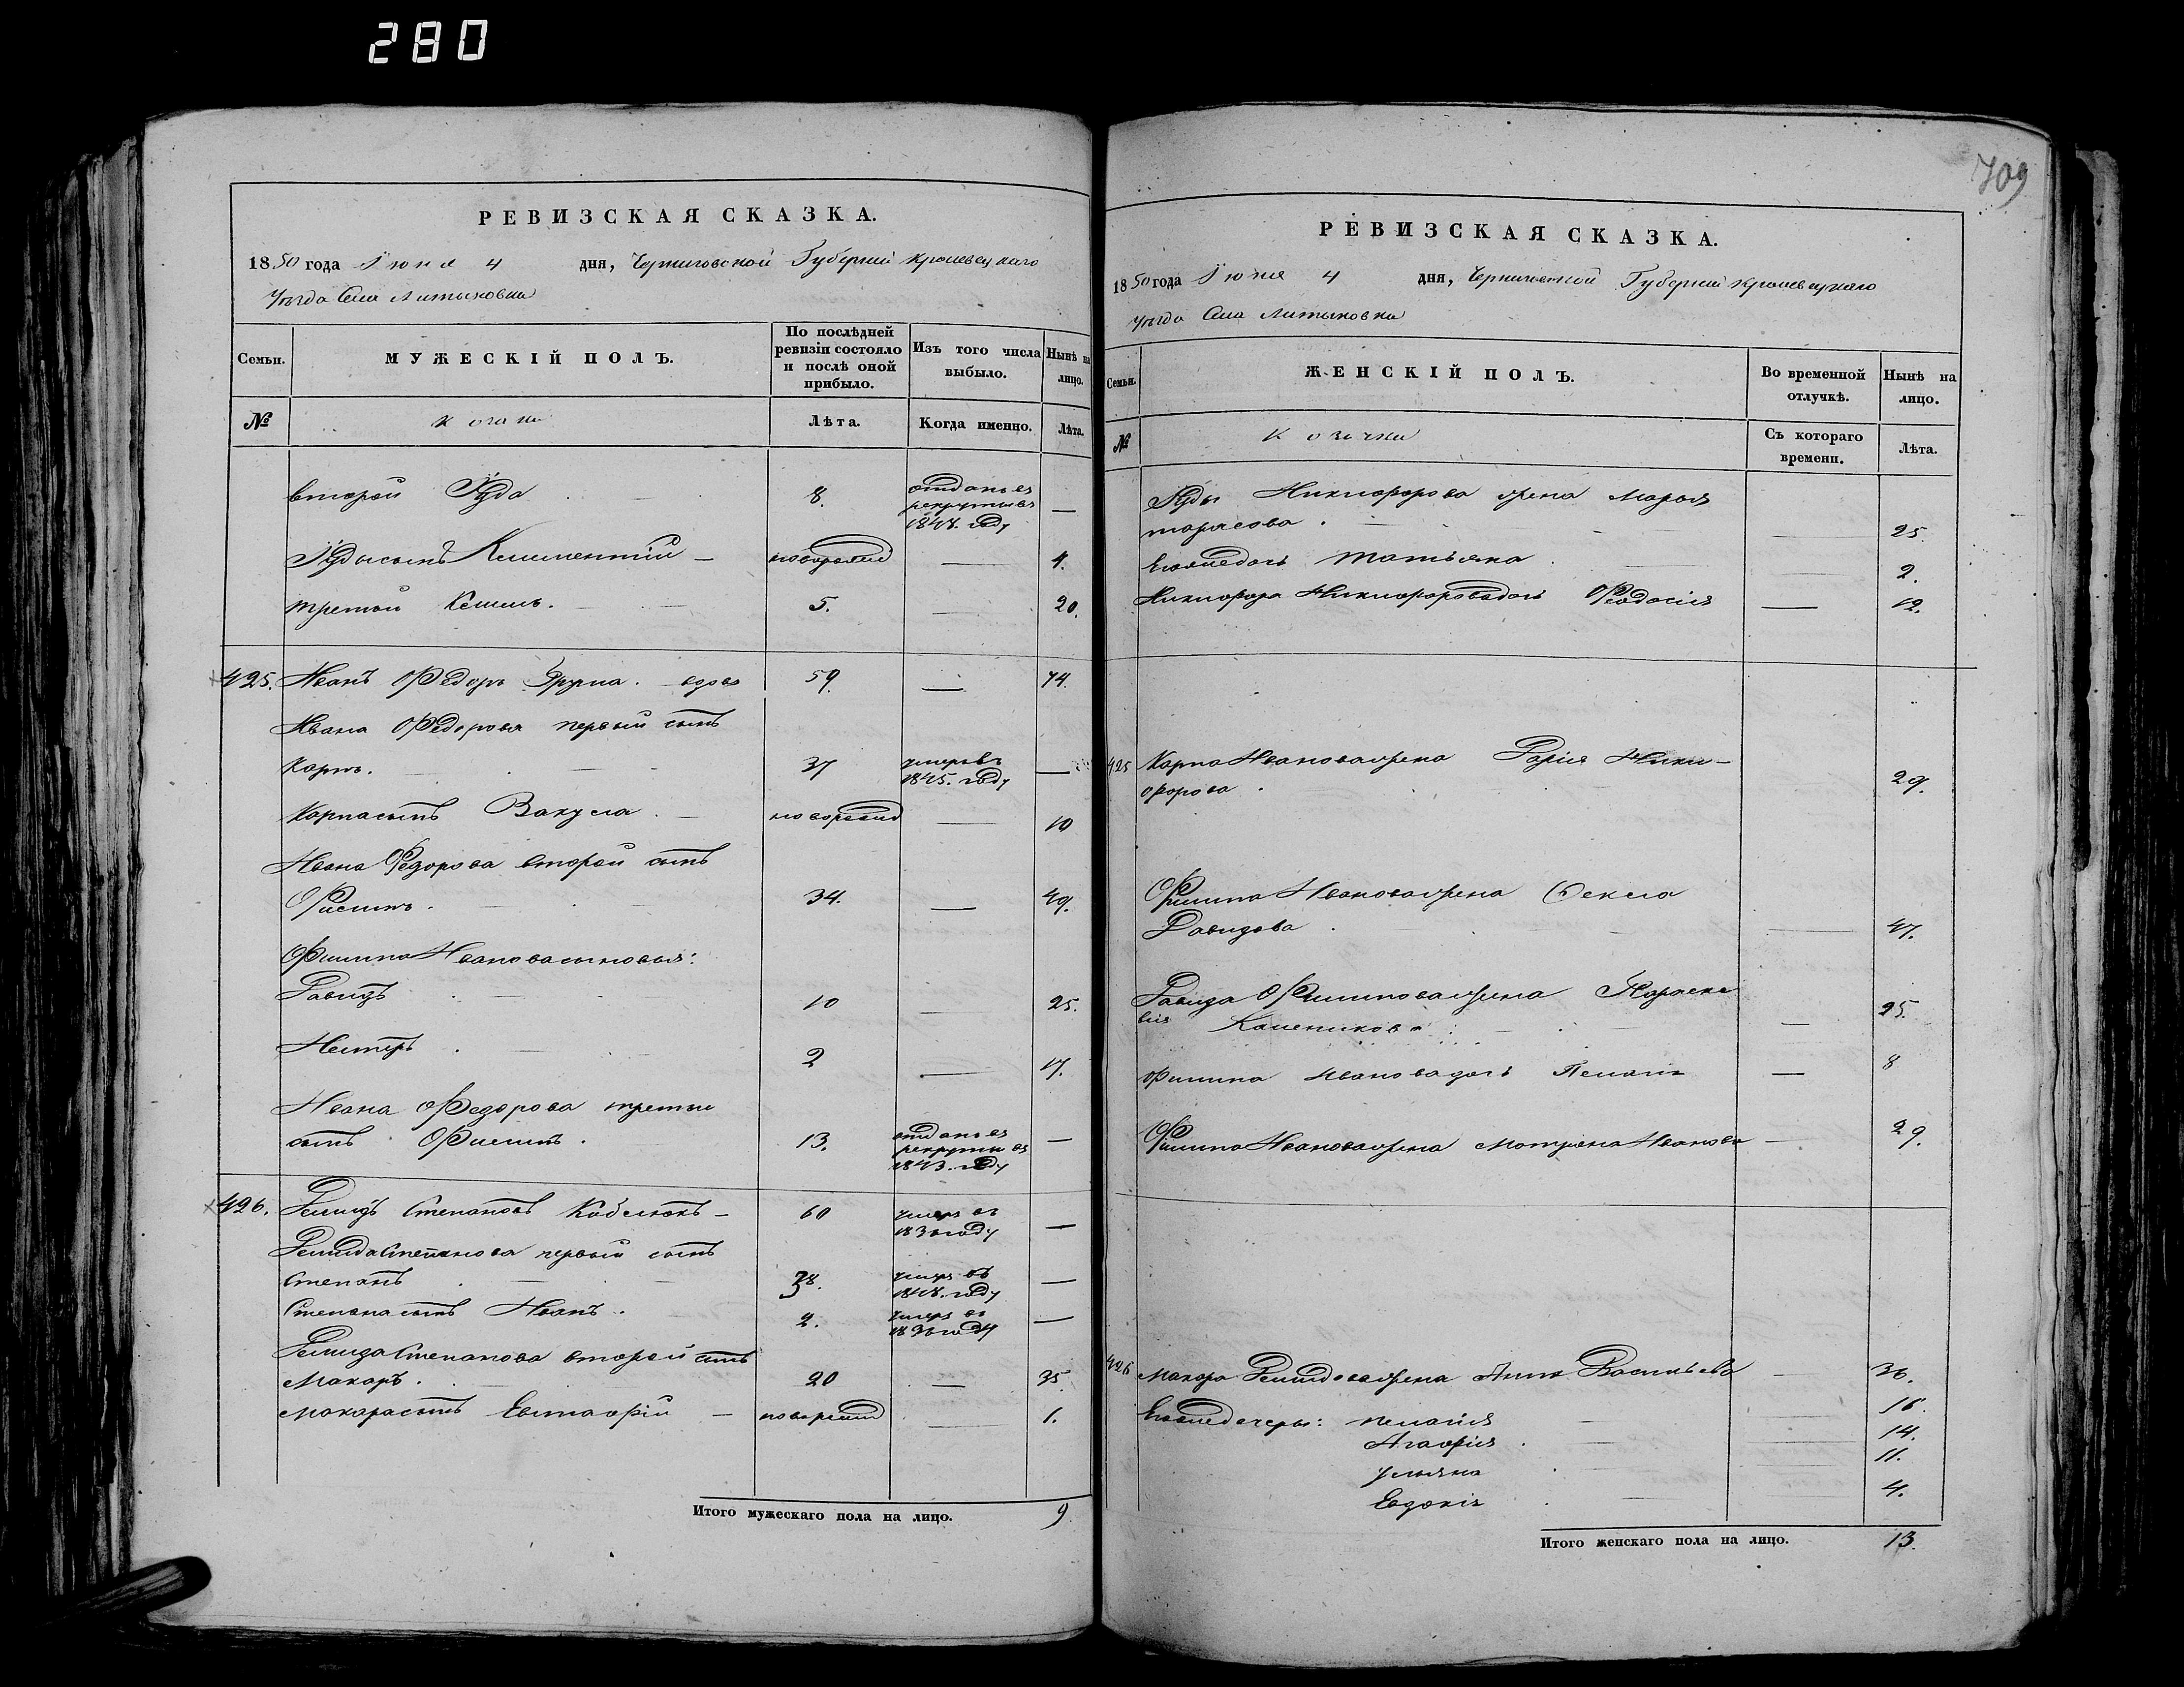 280
709
РЕВИЗСКАЯ СКАЗКА.
1850 года Июня 4 дня, Черниговской Губернии Кролевецкаго
уѣзда Села Литвиновки
Семьи.
МУЖЕСКІЙ ПОЛЪ.
По послѣдней ревизіи состояло и послѣ оной прибыло.
Изъ того числа выбыло.
Нынѣ на лицо.
№
Козаки
Лѣта.
Когда именно.
Лѣта.
второй Іуда 8. отданъ въ рекруты въ 1848. году —
Іуды сынъ Климентій — новорожд — 4.
третій 5. — 20.
425. Иванъ Федоръ вдовъ 59. — 74.
Ивана Федорова первый сынъ
Карпъ. 37 умеръ въ 1845. году —
Карпа сынъ Вакула новорожд — 10
Ивана Федорова второй сынъ
Филипъ. 34. — 49.
Филипа Иванова сыновья:
Давидъ 10 — 25.
Несторъ 2 — 17.
Ивана Федорова третій
сынъ Филипъ. 13. отданъ въ рекруты въ 1843. году —
426. Демидъ Степановъ Кобелюкъ — 60 умеръ въ 1836 году —
Демида Степанова первый сынъ
Степанъ 38. умеръ въ 1848. году —
Степана сынъ Иванъ. 2. умеръ въ 1836 году —
Демида Степанова второй сынъ
Макаръ. 20 — 35.
Макара сынъ Евстафій — новорожд — 1.
Итого мужескаго пола на лицо. 9
РЕВИЗСКАЯ СКАЗКА.
1850 года Июня 4 дня, Черниговской Губернии Кролевецкаго
уѣзда Села Литвиновки
Семьи.
ЖЕНСКІЙ ПОЛЪ.
Во временной отлучкѣ.
Нынѣ на лицо.
№
Козачки
Съ котораго времени.
Лѣта.
Іуды Никифорова жена Марья
Тарасова. — 25.
Его же дочь Татьяна — 2.
Никифора Никифорова дочь Феодосія — 12.
425 Карпа Иванова жена Дарія Ники-
форова. 29.
Филипа Иванова жена Фекла
Давидова — 47.
Давида Филипова жена Параске
вія — 25.
Филипа Иванова дочь Пелагія — 8
Филипа Иванова жена Мотрона Иванова — 29.
426 Макара Демидова жена Анна Васильева — 36.
Его же дочери: Пелагія — 16.
Агафія — 14.
Ульяна — 11.
Евдокія — 4.
Итого женскаго пола на лицо. 13.